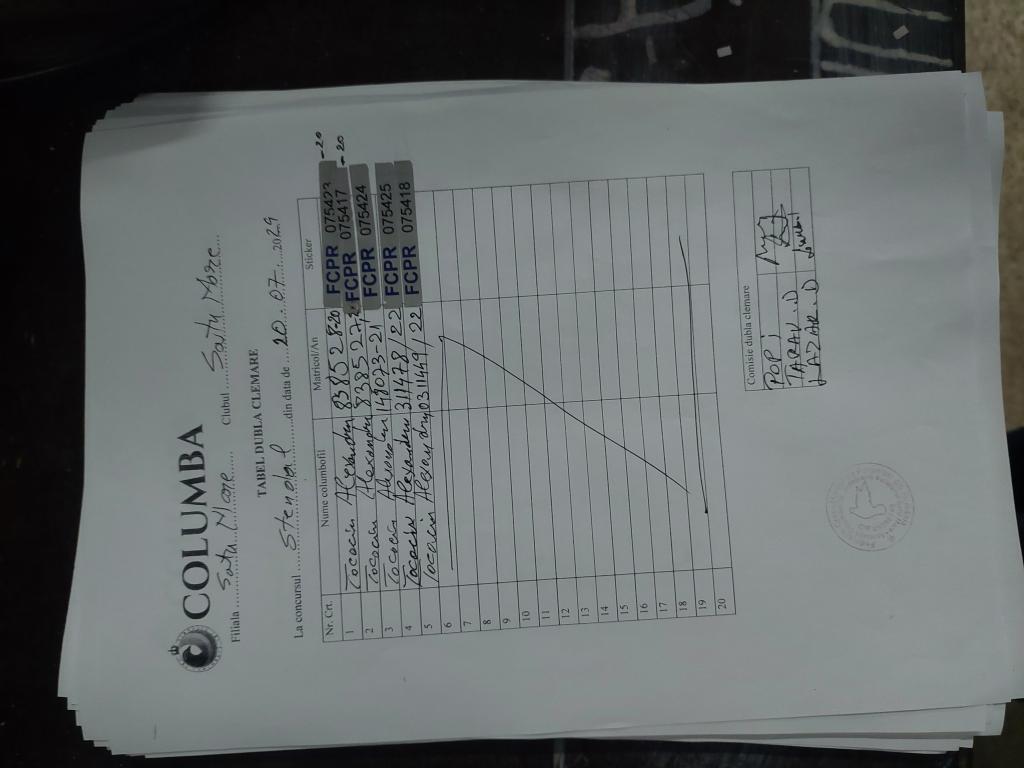 COLUMBA
Filiala Satu Mare Clubul Satu Mare
TABEL DUBLA CLEMARE
La concursul Stendal din data de 20.07.2024
Nr. Crt. Nume columbofil Matricol/An Sticker
1 Tococin Alexandru 838528-20 FCPR 075423 -20
2 Tococin Alexandru 838527 FCPR 075417 -20
3 Tococin 149073-21 FCPR 075424
4 Tococin Alexandru 311478/22 FCPR 075425
5 Tococin Alexandru 0311449/22 FCPR 075418
6
7
8
9
10
11
12
13
14
15
16
17
18
19
20
Comisie dubla clemare
POP i
TARAK.D
LAZAR.D